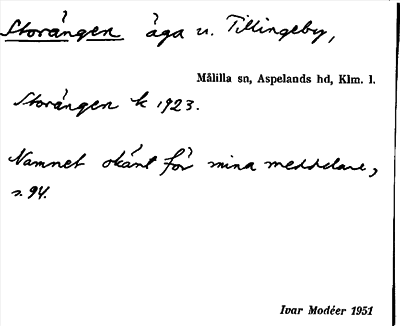 Storängen äga u. Tillingeby,
Målilla sn, Aspelands hd, Klm. l.
Storängen k 1923.
Namnet okänt för mina meddelare,
s. 94.
Ivar Modéer 1951